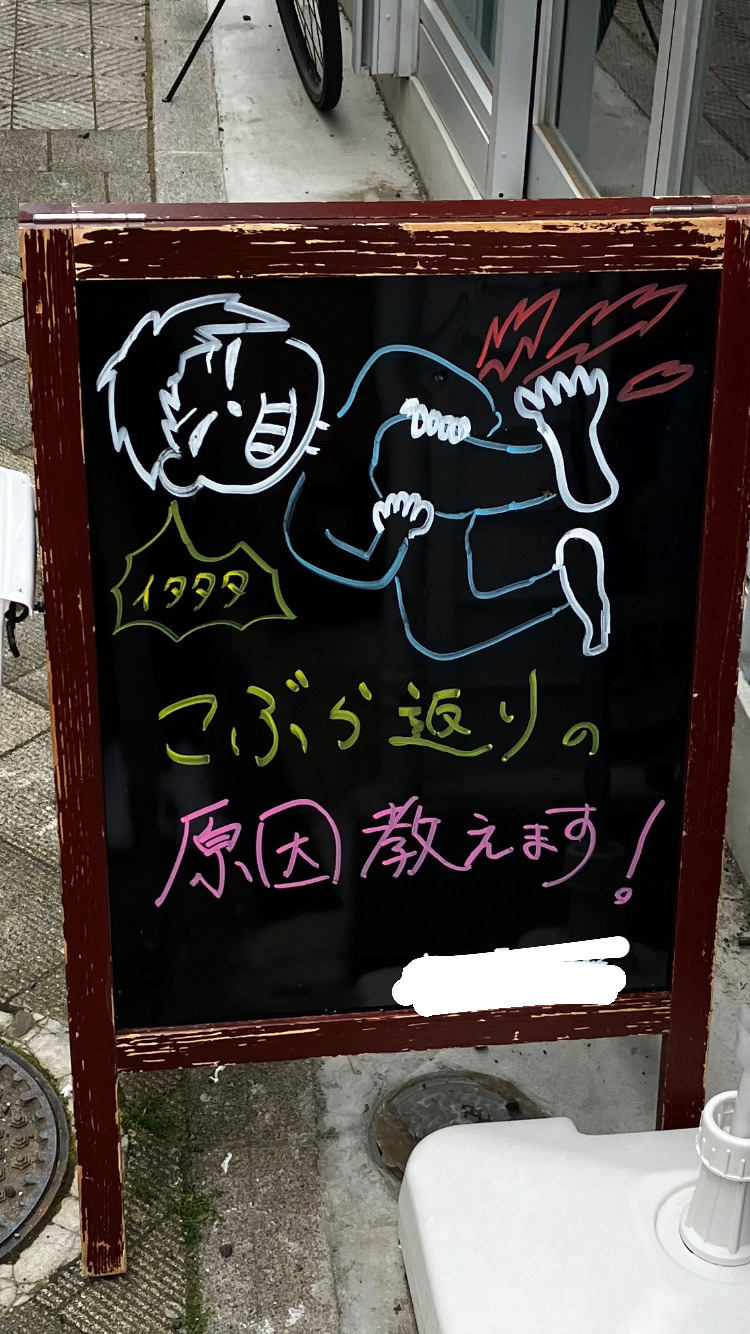 イタタタ
こぶら返りの
原因教えます!